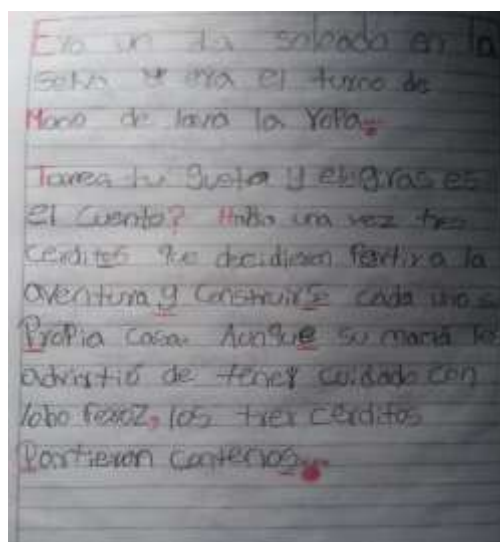 Era un día soleado en la
selva y era el turno de
Mono de lava la ropa.
Tarea tu gusta y alegras es
el cuento? Había una vez tres
cerditos que decidieron partir a la
aventura y construirse cada uno s
Propia casa. Aunque su mamá lo
advirtió de tener cuidado con
lobo feroz, los tres cerditos
Partieron contentos.